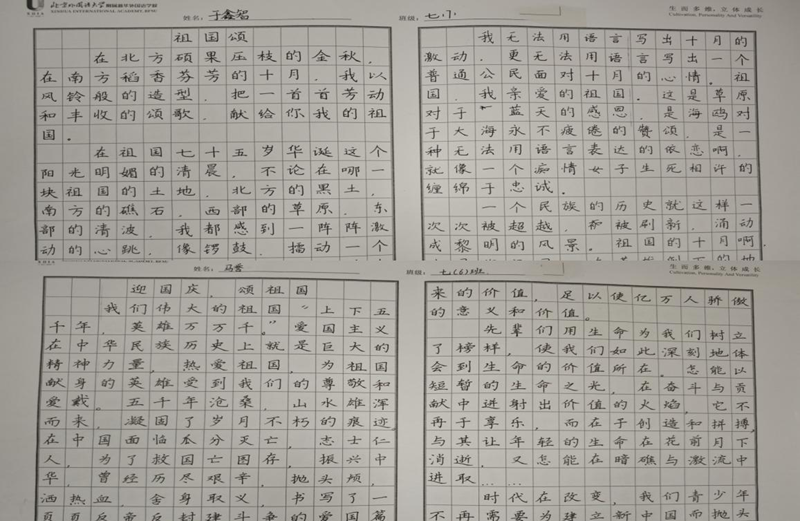 北京外国语大学
INTERNATIONAL ACADEMY, BFSU
姓名：于鑫智
班级：七
生而多维，立体成长
Cultivation, Personality And Versatility
祖国颂
在北方硕果压枝的金秋，
在南方稻香芬芳的十月，我以
风铃般的造型，把一首首劳动
和丰收的颂歌，献给你我的祖
国。
在祖国七十五岁华诞这个
阳光明媚的清晨，不论在哪一
块祖国的土地，北方的黑土，
南方的礁石，西部的草原，东
部的清波，我都感到一阵阵激
动的心跳，像锣鼓，擂动一个
我无法用语言写出十月的
激动，更无法用语言写出一个
普通公民面对十月的心情。祖
国，我亲爱的祖国，这是草原
对于蓝天的感恩，是海鸥对
于大海永不疲倦的赞颂，是一
种无法用语言表达的依恋啊，
就像一个痴情女子生死相许的
缠绵于忠诚。
一个民族的历史就这样一
次次被超越，和被刷新，涌动
成黎明的风景。祖国的十月啊，
姓名：马睿
班级：七(6)班
生而多维，立体成长
Cultivation, Personality And Versatility
迎国庆，颂祖国
我们伟大的祖国“上下五
千年，英雄万万千。”爱国主义
在中华民族历史上就是巨大的
精神力量，热爱祖国，为祖国
献身的英雄受到我们的尊敬和
爱戴。五千年沧桑，山水雄浑
而来，凝固了岁月不朽的痕迹，
在中国面临瓜分灭亡，志士仁
人，为了救国亡图存，振兴中
华，曾经历尽艰辛，抛头颅，
洒热血，舍身取义，书写了一
页页反帝反封建斗争的爱国篇
来的价值，足以使亿万人骄傲
的意义和价值。
先辈们用生命为我们树立
了榜样，使我们如此深刻地体
会到生命的价值所在。怎能以
短暂的生命之光，在奋斗与贡
献中迸射出价值的火焰，它不
再于享乐，而在于创造和拼搏，
与其让年轻的生命在花前月下
消逝，又怎能在暗礁与激流中
进取……
时代在改变，我们青少年
不再需要为建立新中国而抛头